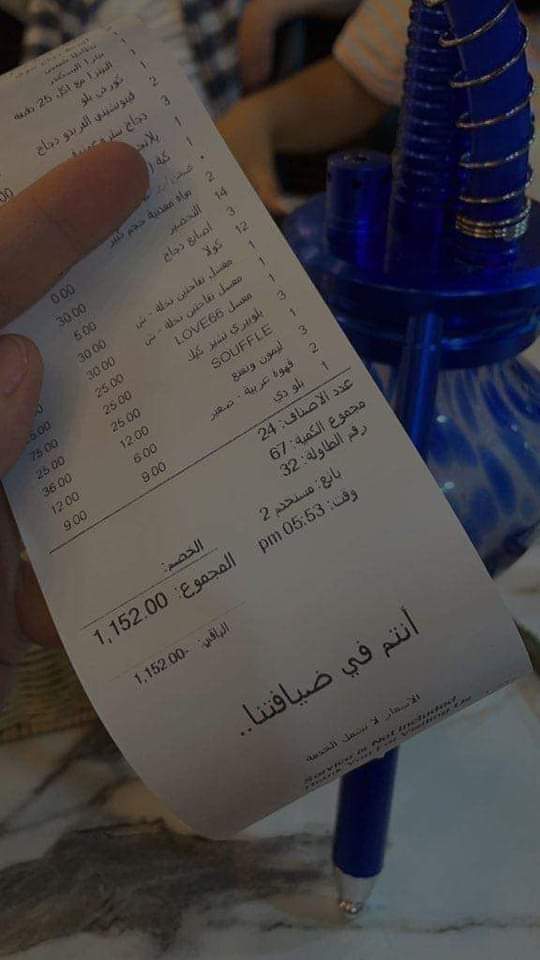 البيتزا مع اكل 25 دقيقة 1
كوردن بلو 2
فيتوتشيني الفريدو دجاج 3
دجاج 1
1
ماء معدنية حجم كبير 2
0.00 التحضير 14
30.00 أصابع دجاج 3
5.00 كولا 12
30.00 معسل تفاحتين نخلة - س 1
30.00 معسل تفاحتين نخلة - س 1
25.00 معسل LOVE66 1
75.00 25.00 بلوبيري تشيز كيك 3
25.00 25.00 SOUFFLE 1
36.00 12.00 ليمون ونعنع 3
12.00 6.00 قهوة عربية - صغير 2
9.00 9.00 بلو دي 1
عدد الاصناف: 24
مجموع الكمية: 67
رقم الطاولة: 32
بائع: مستخدم 2
وقت: 05:53 pm
الخصم:
المجموع: 1,152.00
الباقي: -1,152.00
أنتم في ضيافتنا..
الاسعار لا تشمل الخدمة
Service is Not Included
Thank You For Visiting Us